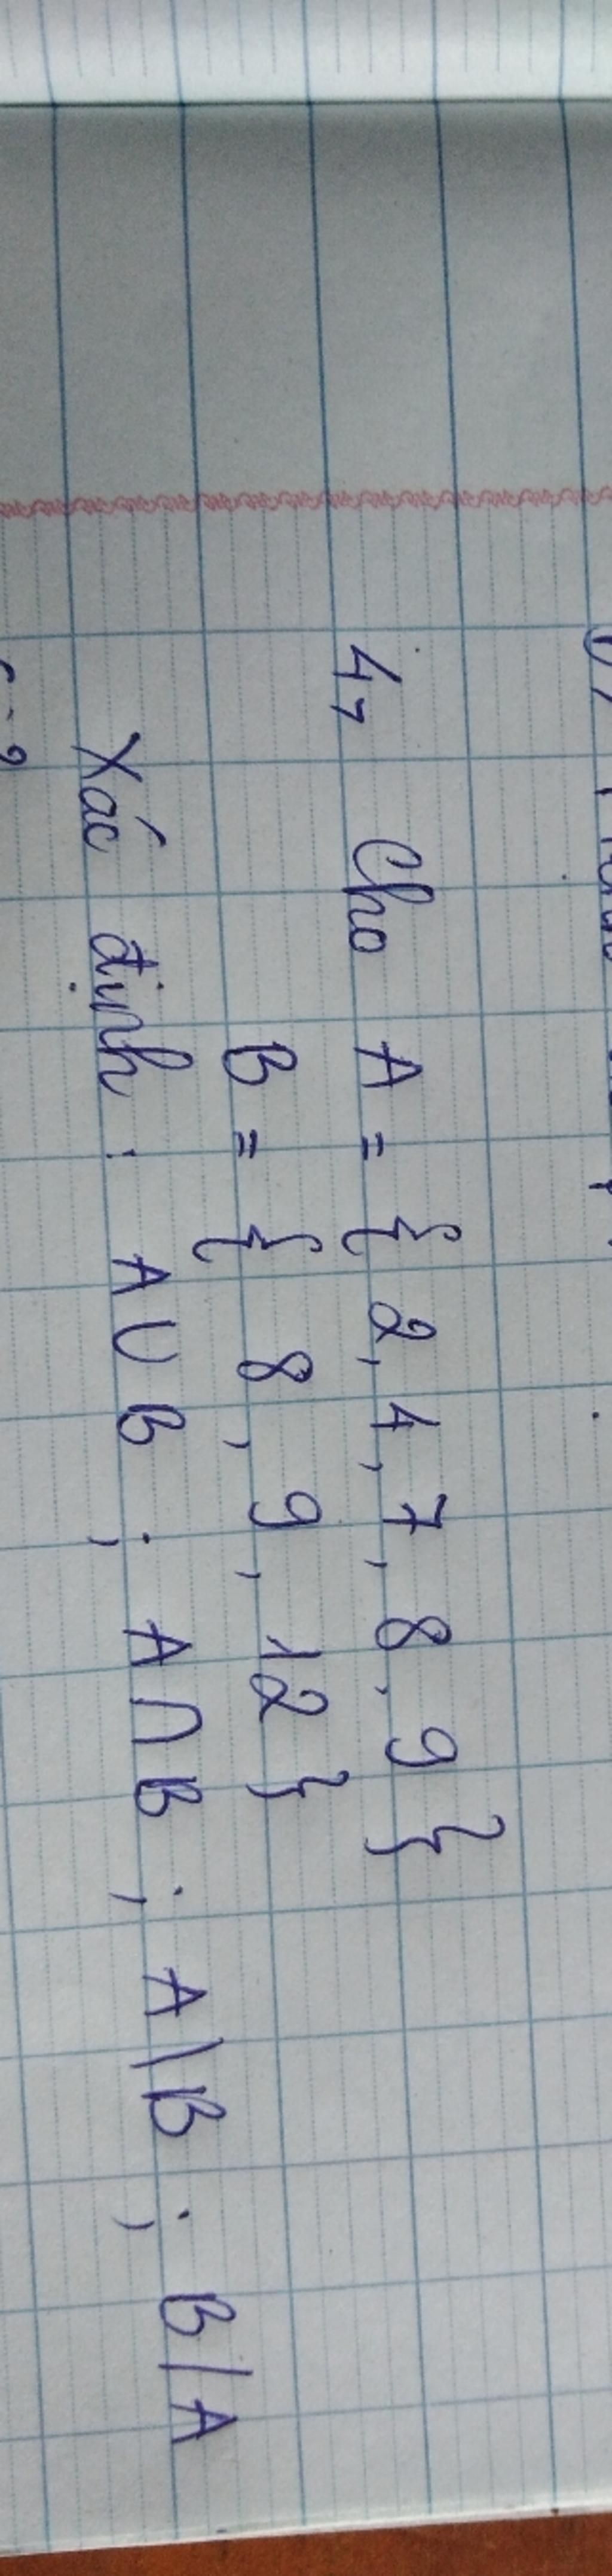 4, Cho A = { 2, 4, 7, 8, 9 }
B = { 8, 9, 12 }
Xác định : A ∪ B ; A ∩ B ; A \ B ; B / A